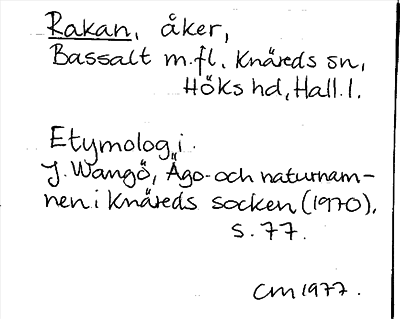 Rakan, åker,
Bassalt m.fl. Knäreds sn,
Höks hd, Hall. l.
Etymologi.
J. Wangö, Ägo- och naturnam-
nen i Knäreds socken (1970),
s. 77.
CM 1977.